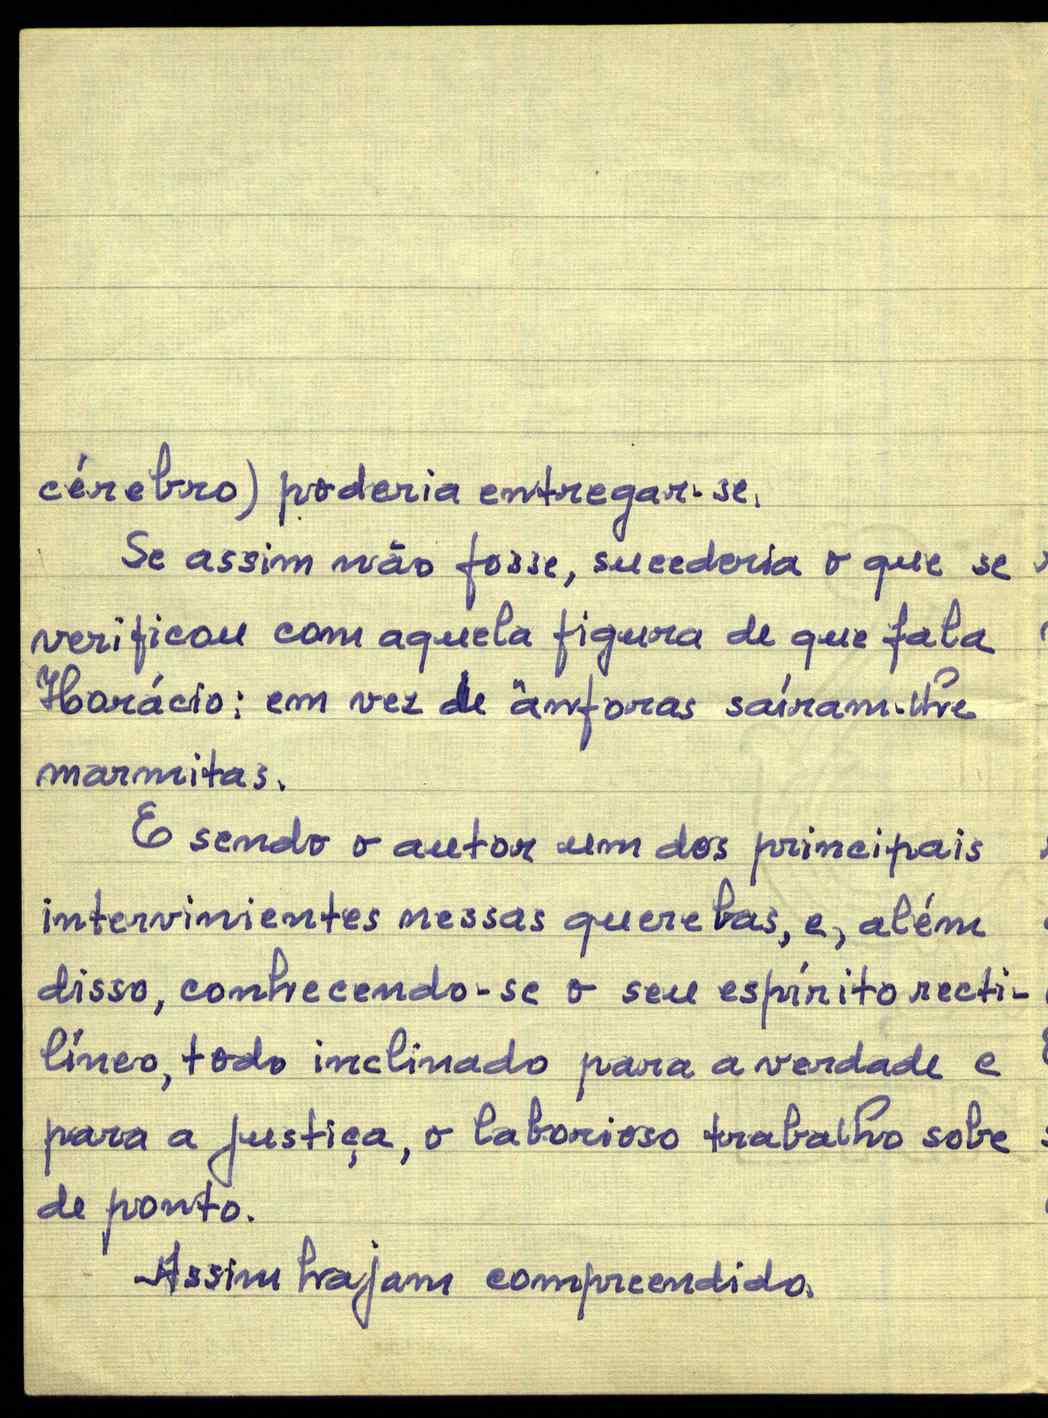 cérebro) poderia entregar-se.
Se assim não fosse, sucederia o que se
verificou com aquela figura de que fala
Horácio: em vez de ânforas saíram-lhe
marmitas.
E sendo o autor um dos principais
intervinientes nessas querelas, e, além
disso, conhecendo-se o seu espírito recti-
líneo, todo inclinado para a verdade e
para a justiça, o laborioso trabalho sobe
de ponto.
Assim hajam compreendido.